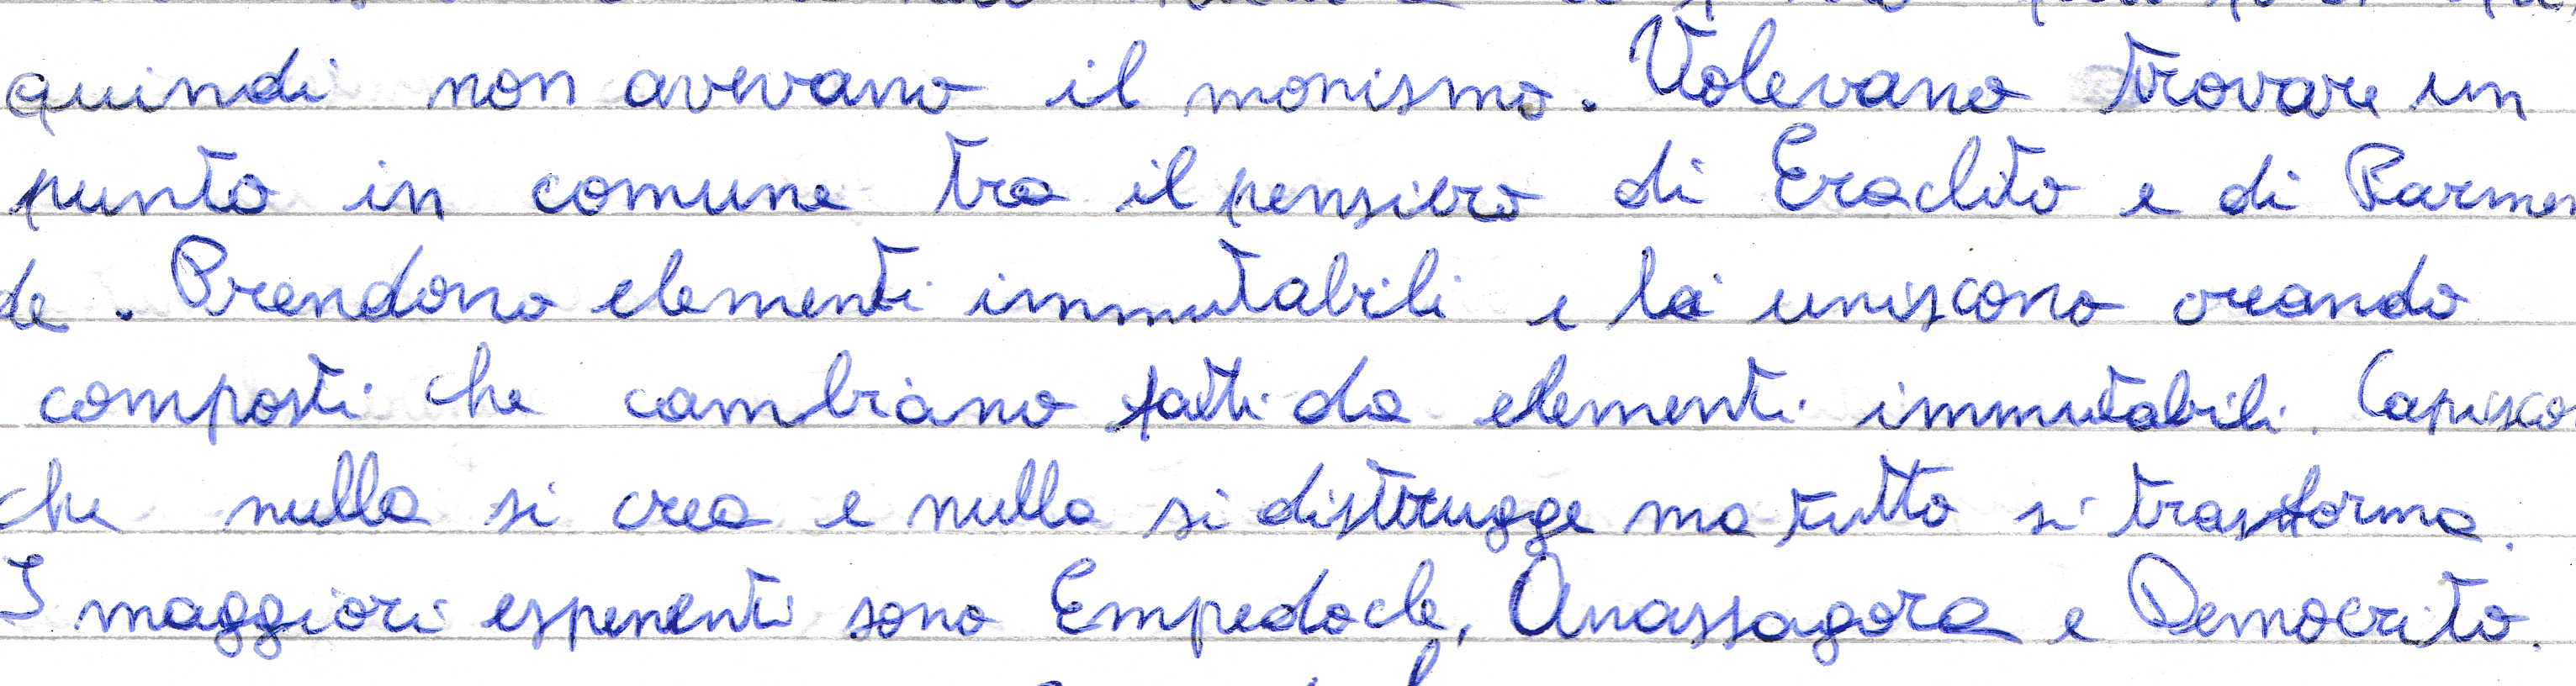 quindi non avevano il monismo. Volevano trovare un
punto in comune tra il pensiero di Eraclito e di Parmen
de. Prendono elementi immutabili e li uniscono creando
composti che cambiano fatti da elementi immutabili. Capisco
che nulla si crea e nulla si distrugge ma tutto si trasforma.
I maggiori esponenti sono Empedocle, Anassagora e Democrito.